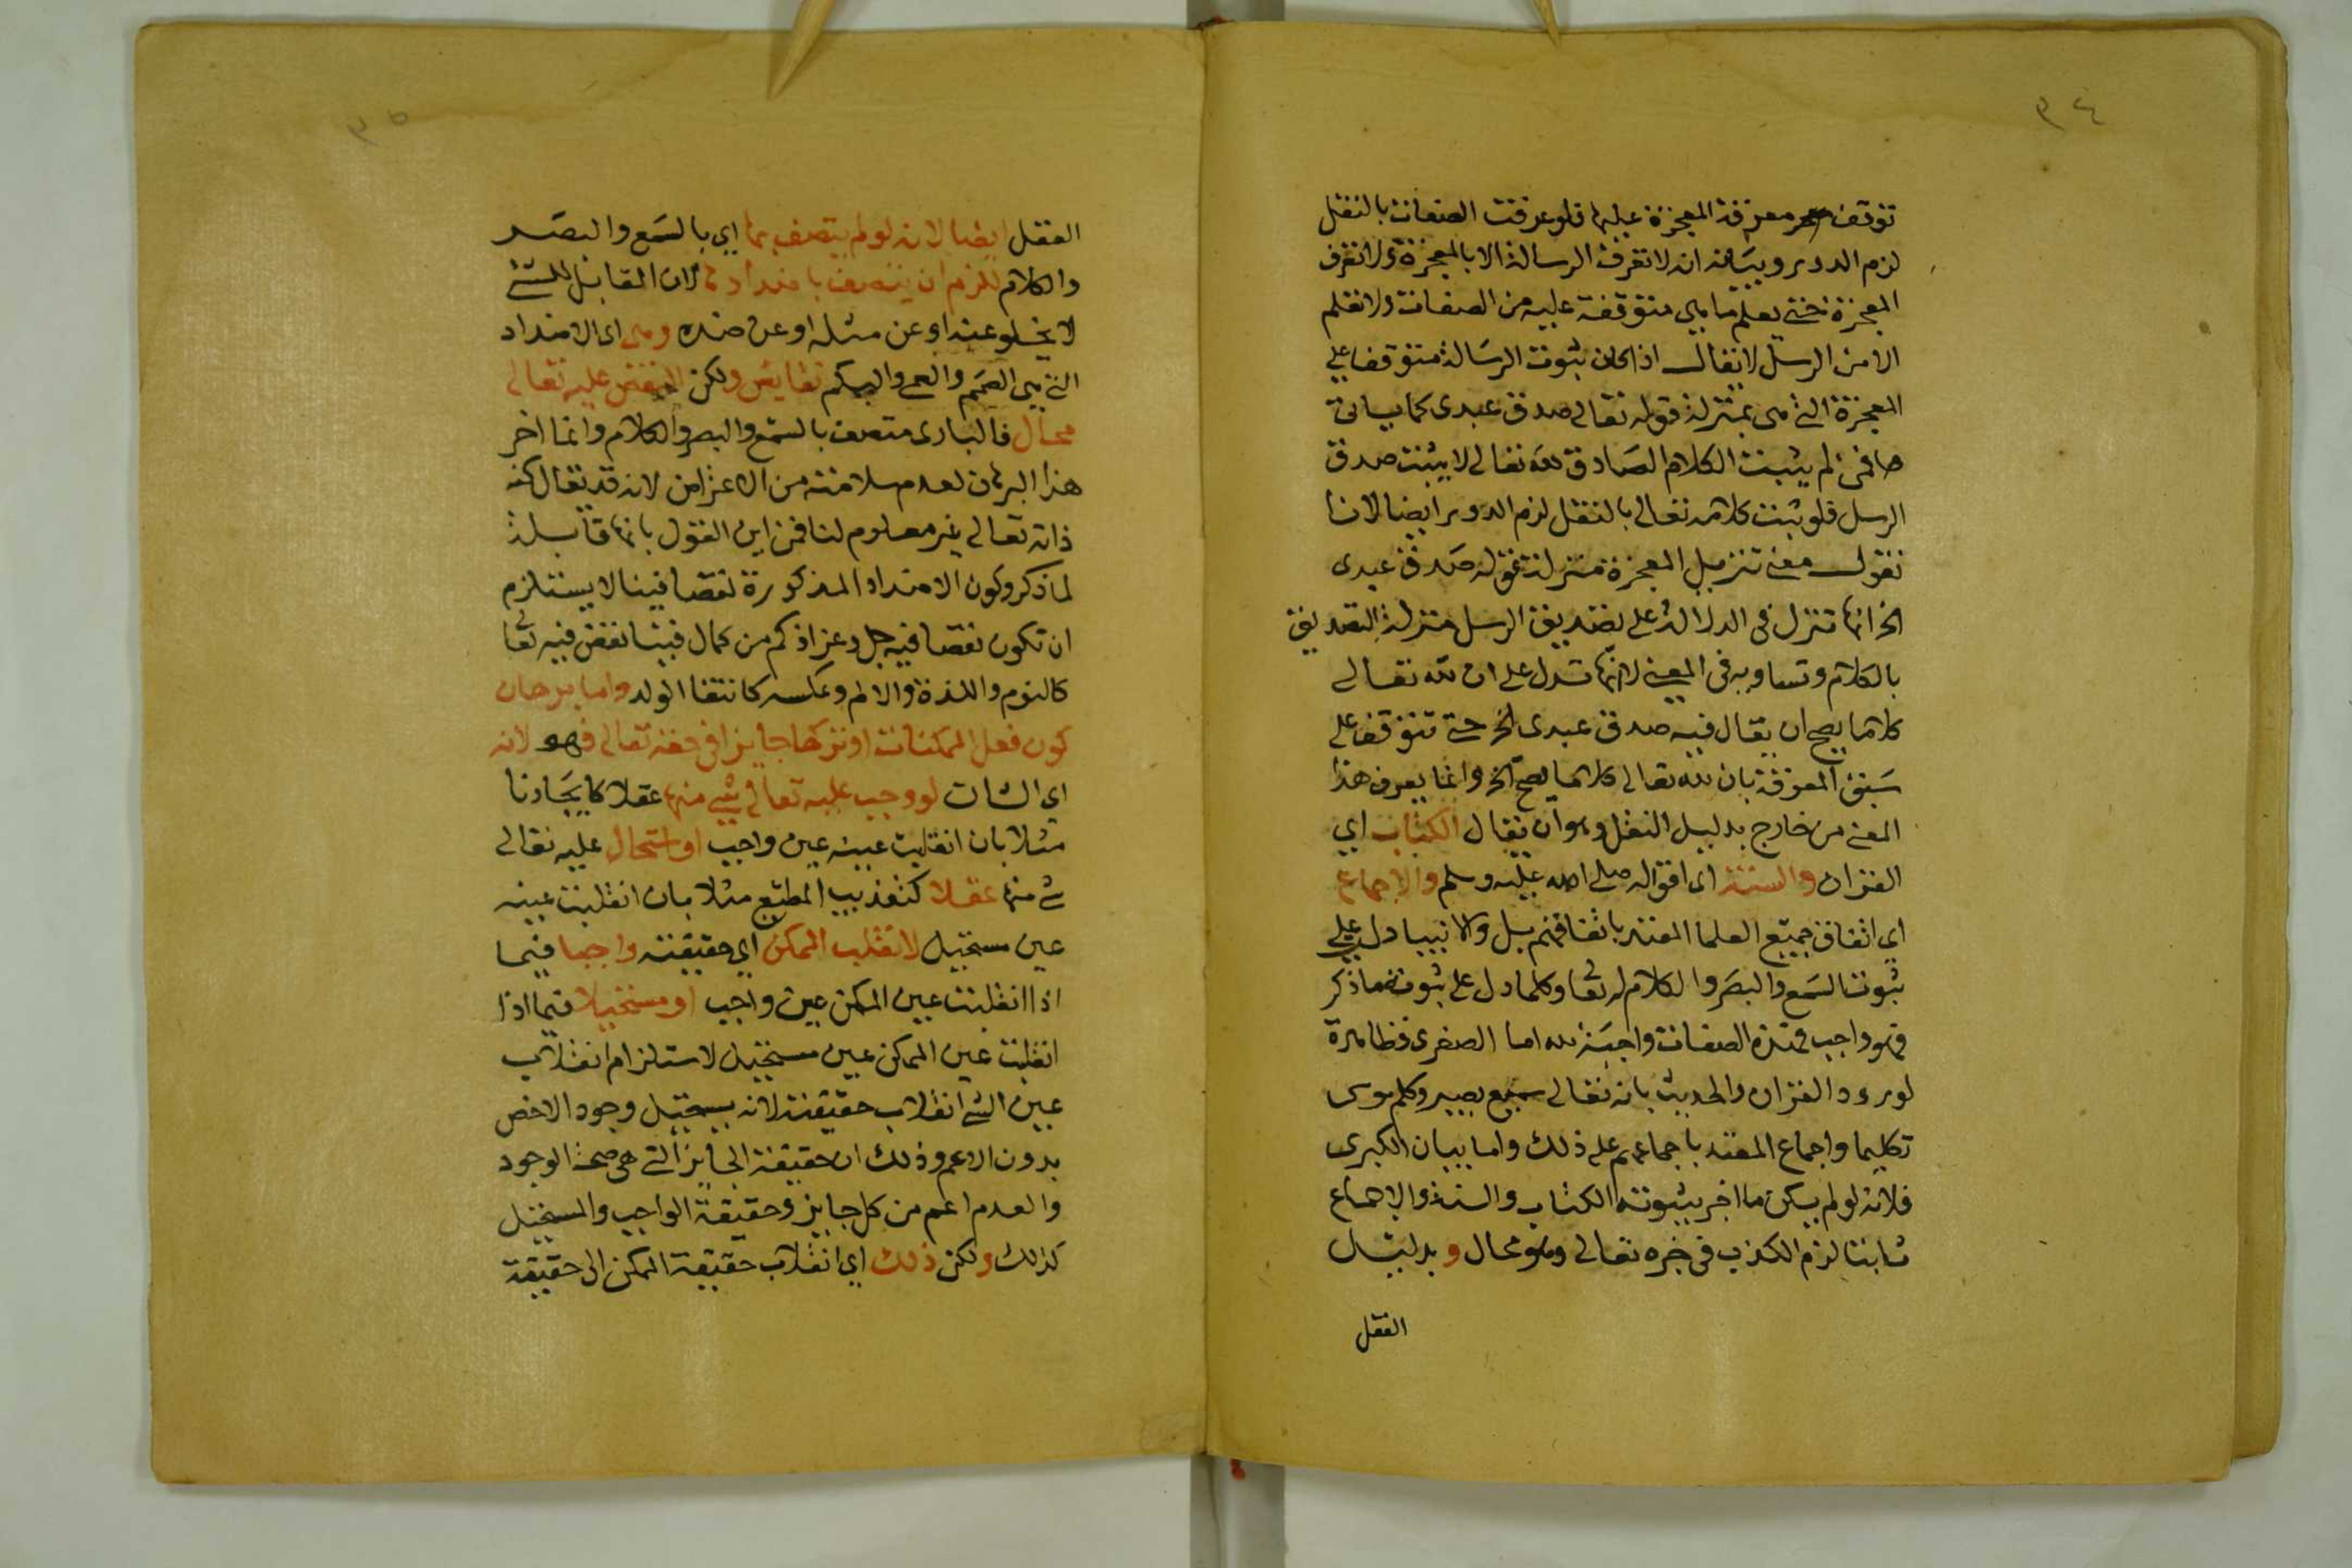 ٣٤
توقف معرفة المعجزة عليها فلو عرفت الصفات بالنقل
لزم الدور وبيانه ان لا تعرف الرسالة الا بالمعجزة ولا تعرف
المعجزة حتى يعلم ما هي متوقفة عليه من الصفات ولا تعلم
الا من الرسل لا يقال اذا كان ثبوت الرسالة متوقفا على
المعجزة التي هي بمنزلة قوله تعالى صدق عبدى كما يياتى
فمن لم يثبت الكلام الصادق لله تعالى لا يثبت صدق
الرسل فلو ثبت كلامه تعالى بالنقل لزم الدور ايضا لانا
نقول معنى تنزيل المعجزة منزلة قوله صدق عبدى
الخ انها تنزل فى الدلالة على تصديق الرسل منزلة التصديق
بالكلام وتساويه فى المعنى لا انها تدل على ان لله تعالى
كلاما يصح ان يقال فيه صدق عبدى الخ حتى تتوقف على
سبق المعرفة بان لله تعالى كلاما يصح الخ وانما يعرف هذا
المعنى من خارج بدليل النقل وهو ان يقال الكتاب اي
القران والسنة اى اقواله صلى الله عليه وسلم والاجماع
اي اتفاق جميع العلما المعتد باتفاقهم بل والانبيا دل على
ثبوت السمع والبصر والكلام له تعا وكلما دل على ثبوته ما ذكر
فهو واجب فهذه الصفات واجبة لله اما الصغرى فظاهرة
لورود القران والحديث بانه تعالى سميع بصير وكلم موسى
تكليما واجماع المعتد باجماعهم على ذلك واما بيان الكبرى
فلانه لو لم يكن ما اخر بثبوته الكتاب والسنة والاجماع
ثابتا لزم الكذب فى خبره تعالى وهو محال وبدليل
العقل
٣٥
العقل ايضا لانه لو لم يتصف بها اي بالسمع والبصر
والكلام للزم ان يتصف باضدادها لان القابل للشئ
لا يخلو عنه او عن مثله او عن ضده وهى اى الاضداد
التى هى الصمم والعمى والبكم نقايص ولكن النقص عليه تعالى
محال فالبارى متصف بالسمع والبصر والكلام وانما اخر
هذا البرهان لعدم سلامته من الاعتراض لانه قد يقال كنه
ذاته تعالى غير معلوم لنا فمن اين القول بانها قابلة
لما ذكر وكون الاضداد المذكورة نقصا فينا لا يستلزم
ان تكون نقصا فيه جل وعز اذ كم من كمال فينا نقص فيه تعا
كالنوم واللذة والالم وعكسه كانتفا الولد واما برهان
كون فعل الممكنات او تركها جايزا فى حقه تعالى فهو لانه
اي الشان لو وجب عليه تعالى شي منها عقلا كايجادنا
مثلا بان انقلبت عينه عين واجب او استحال عليه تعالى
شئ منها عقلا كتعذيب المطيع مثلا بان انقلبت عينه
عين مستحيل لانقلب الممكن اي حقيقته واجبا فيما
اذا انقلبت عين الممكن عين واجب او مستحيلا فيما اذا
انقلبت عين الممكن عين مستحيل لاستلزام انقلاب
عين الشئ انقلاب حقيقته لانه يستحيل وجود الاخص
بدون الاعم وذلك ان حقيقة الجايز التى هى صحة الوجود
والعدم اعم من كل جايز وحقيقة الواجب والمستحيل
كذلك ولكن ذلك اي انقلاب حقيقة الممكن الى حقيقة